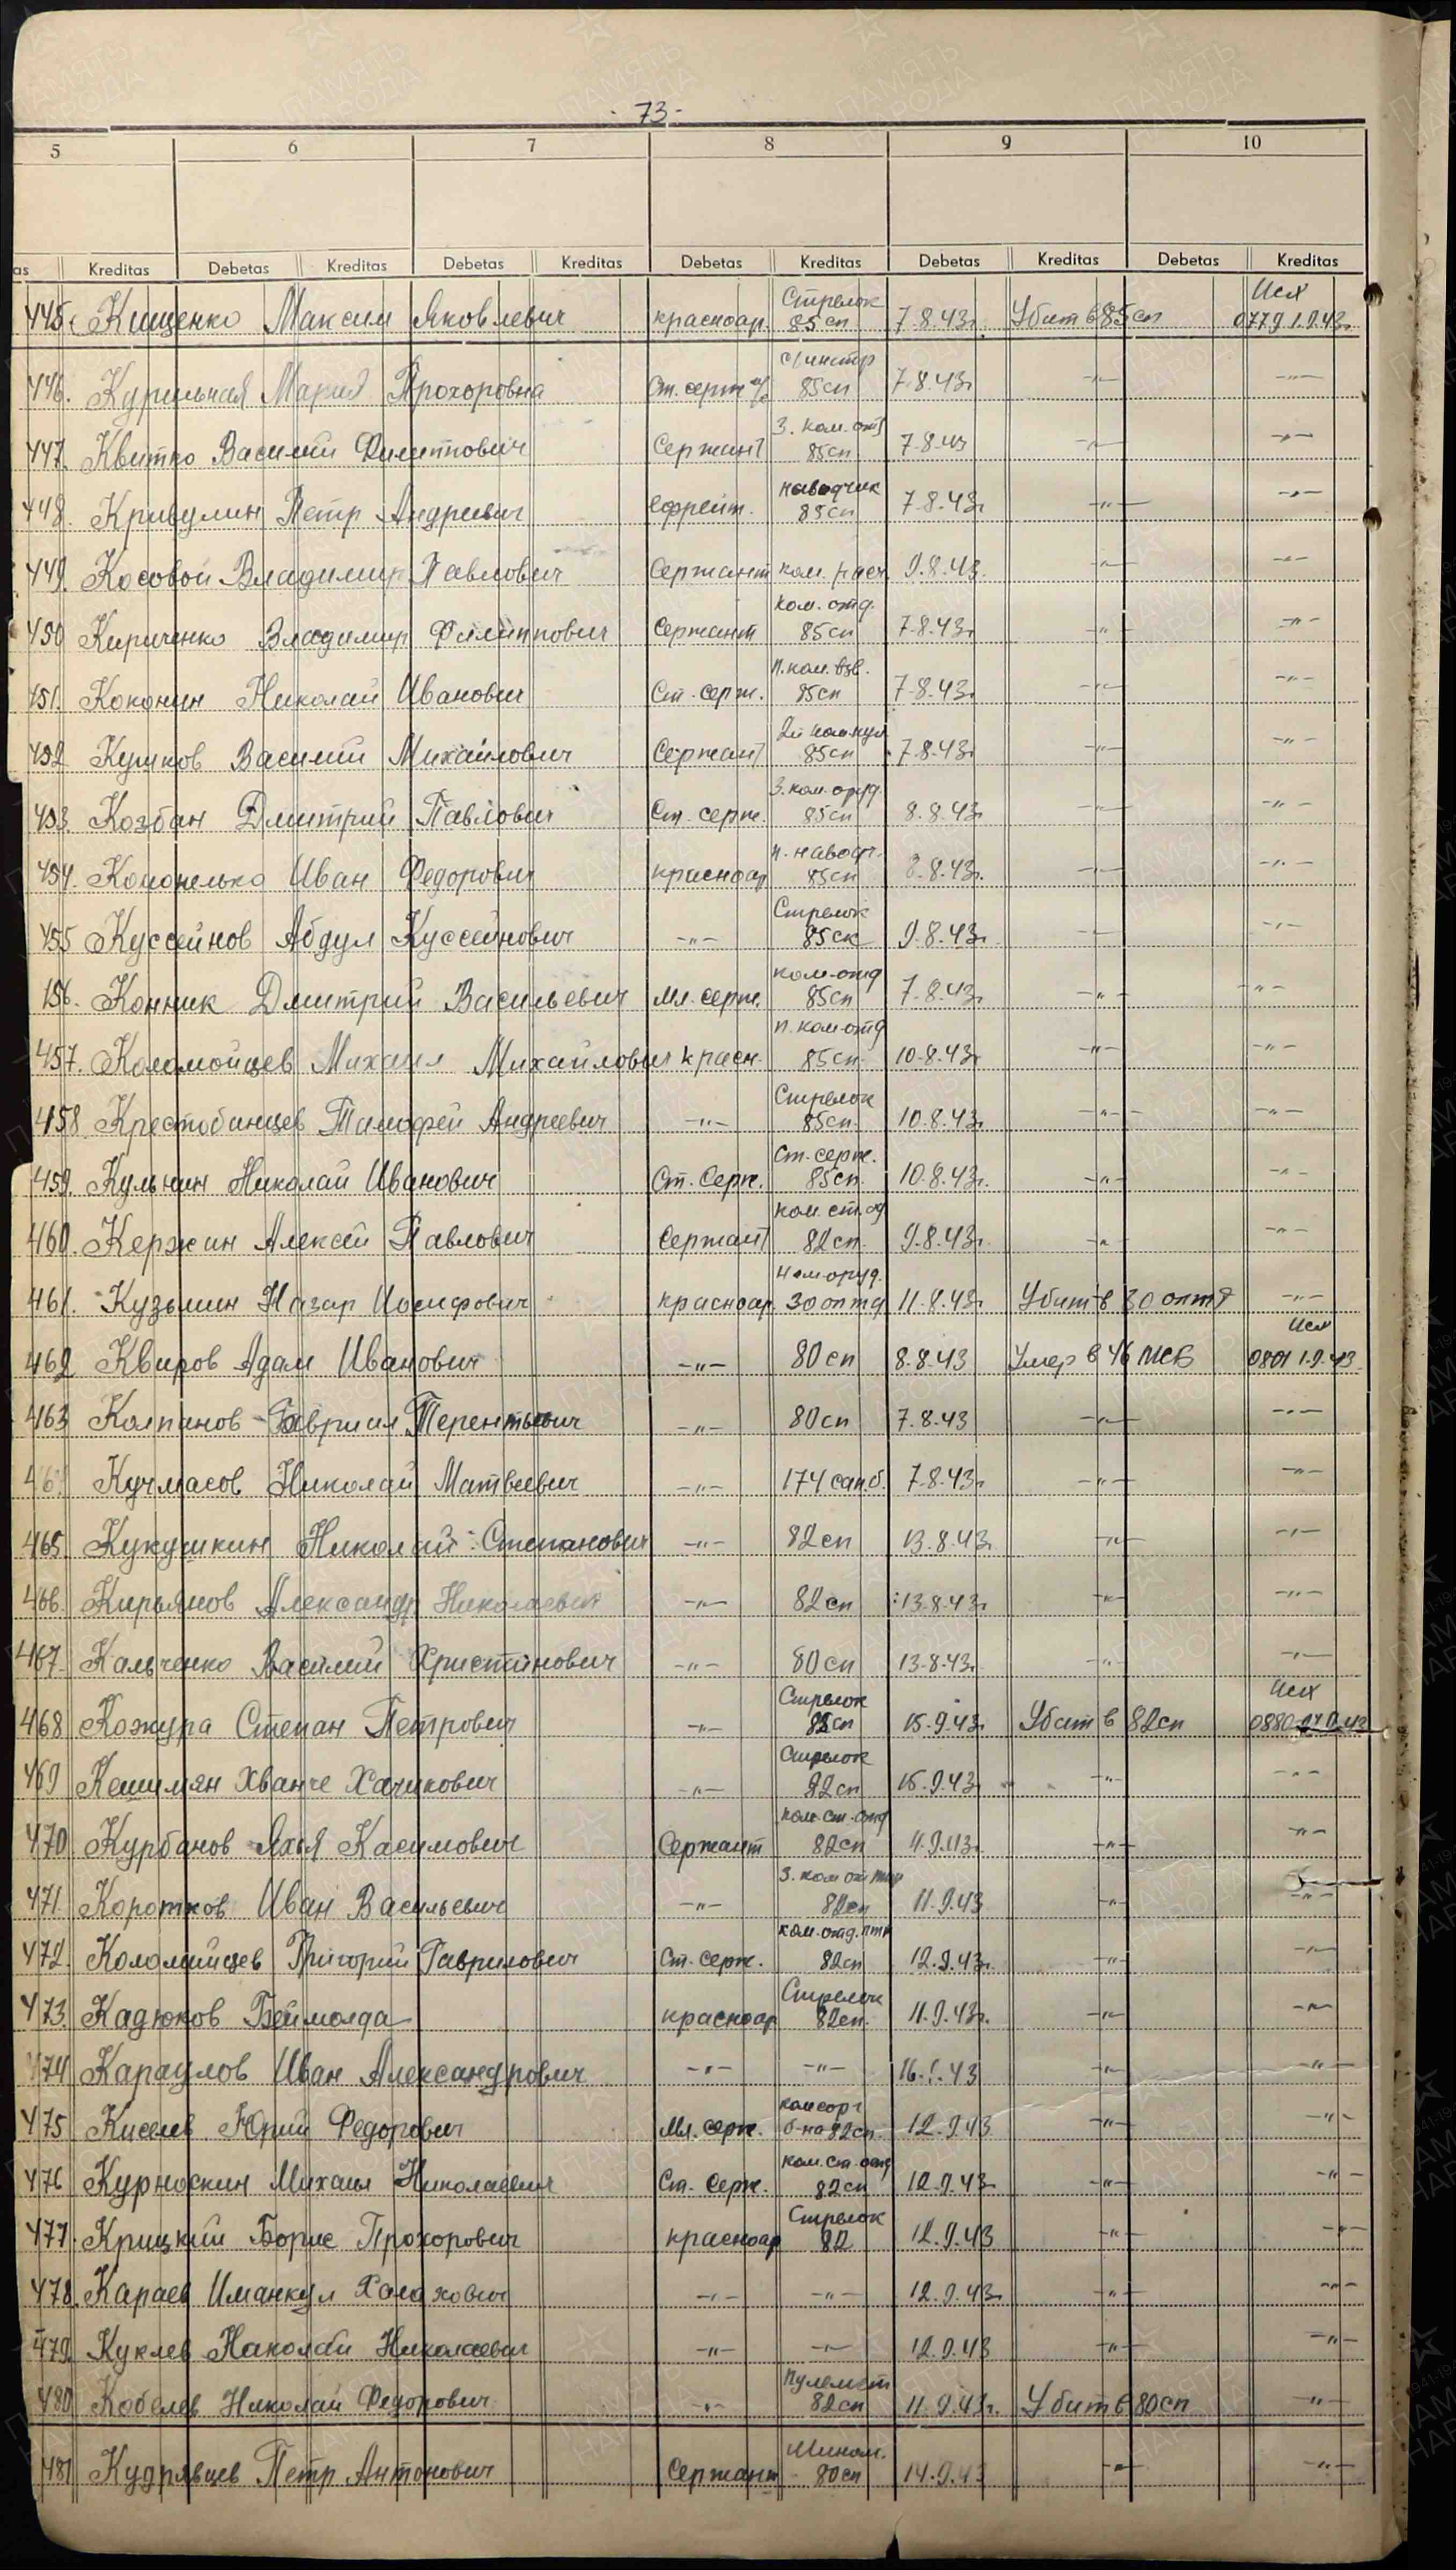 - 73 -
5 6 7 8 9 10
as Kreditas Debetas Kreditas Debetas Kreditas Debetas Kreditas Debetas Kreditas Debetas Kreditas
445. Кищенко Максим Яковлевич красноар. Стрелок 85 сп 7.8.43г. Убит в 85 сп Исх 0779 1.9.43г.
446. Курильная Мария Прохоровна Ст. серж. с/инстр 85 сп 7.8.43г -"- -"-
447. Квитко Василий Филиппович Сержант З. ком. отд 85 сп 7.8.43 -"- -"-
448. Кривулин Петр Андреевич Ефрейт. наводчик 85 сп 7.8.43г -"- -"-
449. Косовой Владимир Павлович Сержант ком. расч 9.8.43. -"- -"-
450 Кириченко Владимир Филиппович Сержант Ком. отд. 85 сп 7.8.43г -"- -"-
451. Коконин Николай Иванович Ст. серж. п. ком. взв. 85 сп 7.8.43г -"- -"-
452 Василий Михайлович Сержант 85 сп 7.8.43г -"- -"-
453. Козбан Дмитрий Павлович Ст. серж. З. ком. оруд. 85 сп 8.8.43г -"- -"-
454. Иван Федорович красноар п. наводч. 85 сп 8.8.43г. -"- -"-
455 Куссейнов Абдул Куссейнович -"- Стрелок 85 ск 9.8.43г. -"- -"-
456. Конник Дмитрий Васильевич Мл. серж. ком. отд 85 сп 7.8.43г -"- -"-
457. Коломойцев Михаил Михайлович красн. п. ком отд 85 сп 10.8.43г -"- -"-
458. Тимофей Андреевич -"- Стрелок 85 сп. 10.8.43г -"- -"-
459. Кульнин Николай Иванович Ст. Серж. Ст. серж. 85 сп. 10.8.43г. -"- -"-
460. Кержин Алексей Павлович Сержант ком. ст. од 82 сп. 9.8.43г. -"- -"-
461. Кузьмин Назар Иосифович красноар. оруд. 30 оптд 11.8.43г Убит в 30 оптд -"-
462 Квиров Адам Иванович -"- 80 сп 8.8.43 Умер в 46 МСБ Исх 0801 1.9.43
463 Колпинов Гавриил Терентьевич -"- 80 сп 7.8.43 -"- -"-
Кучмасов Николай Матвеевич -"- 174 сап.б. 7.8.43г -"- -"-
465 Кукушкин Николай Степанович -"- 82 сп 13.8.43г -"- -"-
466. Кирьянов Александр Николаевич -"- 82 сп 13.8.43г -"- -"-
467 Кальченко Василий Христинович -"- 80 сп 13.8.43г. -"- -"-
468 Кожура Степан Петрович -"- Стрелок 82 сп 15.9.43г Убит в 82 сп Исх 0880
469 Кешишян Хванче Хачикович -"- Стрелок 82 сп 15.9.43г -"- -"-
470 Курбанов Яхья Касимович Сержант ком. ст. отд 82 сп -"- -"-
471. Коротков Иван Васильевич -"- З. ком 82 сп 11.9.43 -"- -"-
472. Коломийцев Григорий Гаврилович Ст. серж. ком. отд. птр 82 сп 12.9.43г. -"- -"-
473. Кадюков Беймолда красноар Стрелок 82 сп. 11.9.43г. -"- -"-
474 Караулов Иван Александрович -"- -"- -"- -"-
475 Киселев Юрий Федорович Мл. серж. комсорг б-на 82 сп. 12.9.43 -"- -"-
476 Курноскин Михаил Николаевич Ст. Серж. Ком. ст. отд 82 сп 12.9.43г -"- -"-
477. Крицкий Борис Прохорович красноар Стрелок 82 12.9.43 -"- -"-
478. Караев Иманкул -"- -"- 12.9.43г. -"- -"-
479. Куклев Николай Николаевич -"- -"- 12.9.43 -"- -"-
480 Кобелев Николай Федорович -"- Пулемет 82 сп 11.9.43г. Убит в 80 сп -"-
481 Кудрявцев Петр Антонович Сержант Мином. 80 сп 14.9.43 -"- -"-